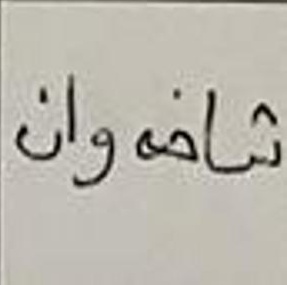 شاخه وان